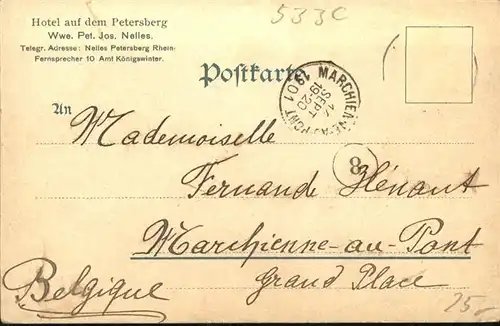 Hotel auf dem Petersberg
Wwe. Pet. Jos. Nelles.
Telegr. Adresse: Nelles Petersberg Rhein-
Fernsprecher 10 Amt Königswinter.
533C
Postkarte
MARCHIENNE-AU-PONT
14
SEPT
19-20
1901
An
Mademoiselle
8
Fernande Hénaut
Marchienne-au-Pont
Grand Place
Belgique
25.-